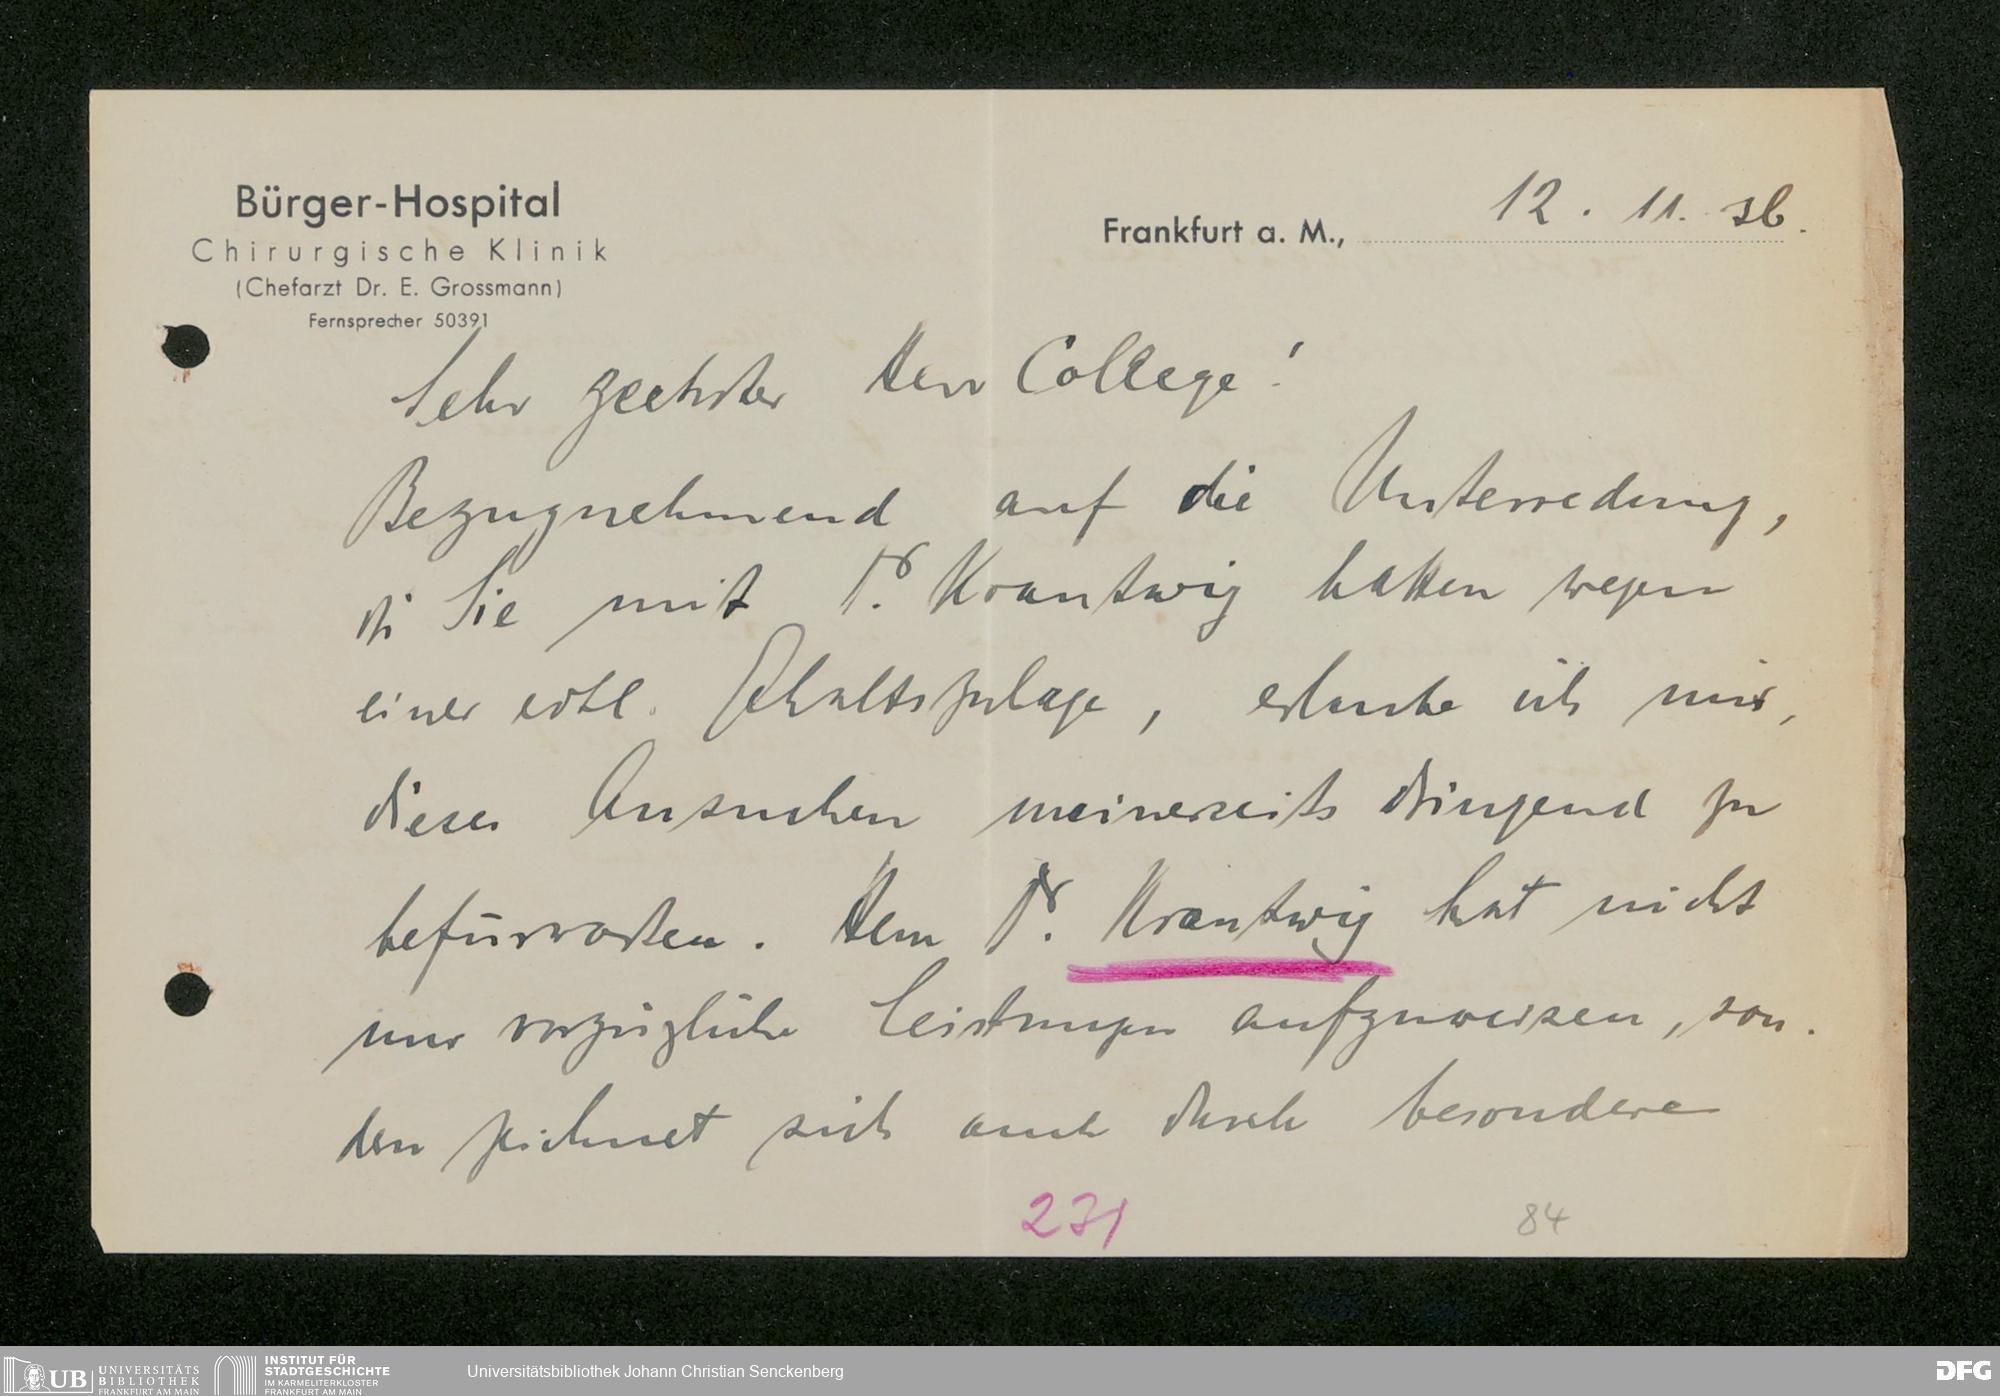 Bürger-Hospital
Chirurgische Klinik
(Chefarzt Dr. E. Grossmann)
Fernsprecher 50391
Frankfurt a. M., 12. 11. 36.
Sehr geehrter Herr College!
Bezugnehmend auf die Unterredung,
die Sie mit Dr. Krantwig hatten wegen
einer evtl. Gehaltszulage, erlaube ich mir,
dieses Ansuchen meinerseits dringend zu
befürworten. Herr Dr. Krantwig hat nicht
nur vorzügliche Leistungen aufzuweisen, son-
dern zeichnet sich auch durch besondere
231
84
UB UNIVERSITÄTS
BIBLIOTHEK
FRANKFURT AM MAIN
INSTITUT FÜR
STADTGESCHICHTE
IM KARMELITERKLOSTER
FRANKFURT AM MAIN
Universitätsbibliothek Johann Christian Senckenberg
DFG